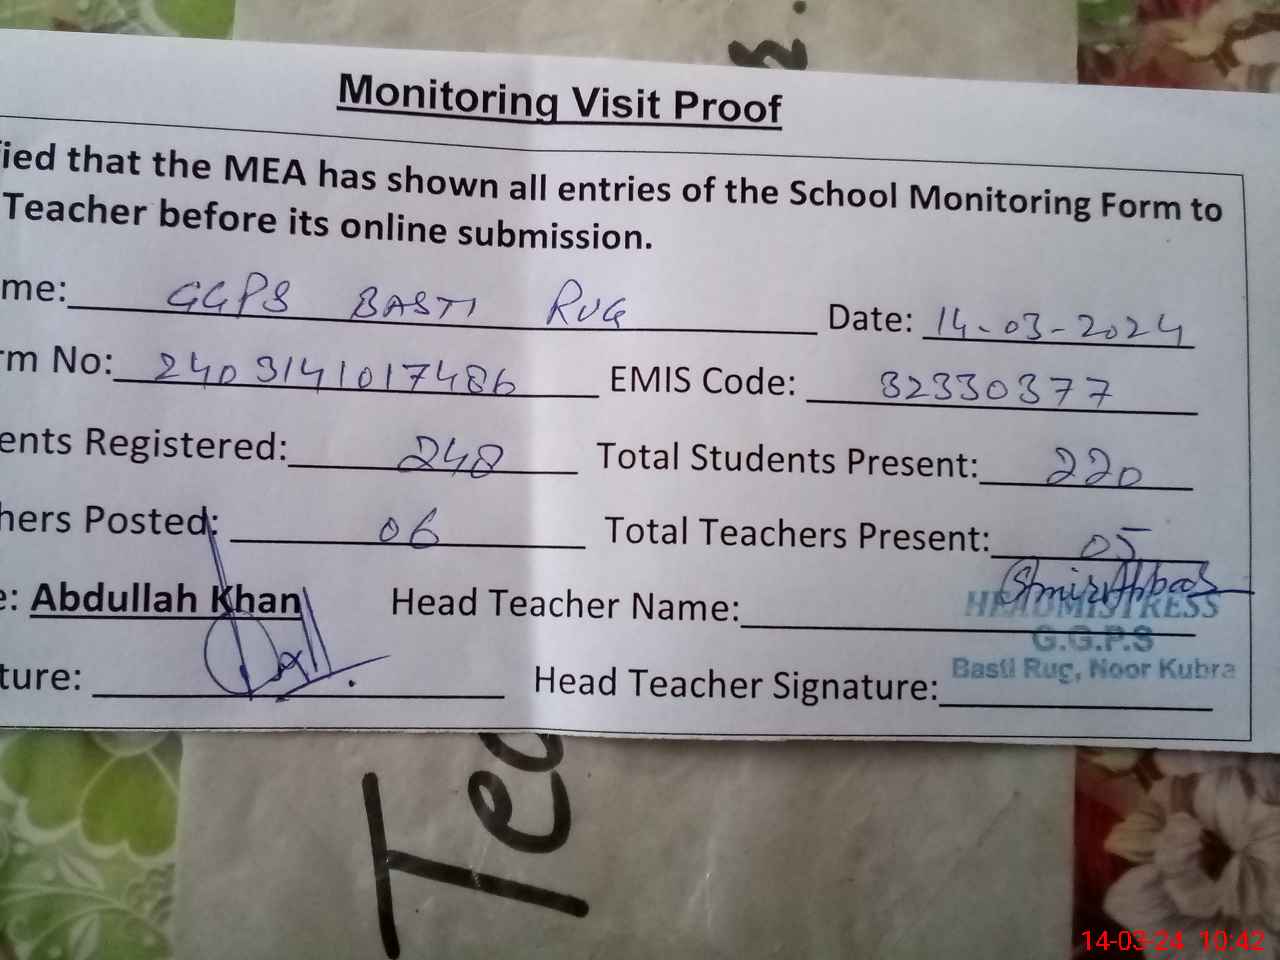 Monitoring Visit Proof
fied that the MEA has shown all entries of the School Monitoring Form to
Teacher before its online submission.
me: GGPS BASTI RUG Date: 14-03-2024
rm No: 2403141017486 EMIS Code: 32330377
ents Registered: 248 Total Students Present: 220
hers Posted: 06 Total Teachers Present: 05
e: Abdullah Khan Head Teacher Name:
HEADMISTRESS
G.G.P.S
Basti Rug, Noor Kubra
ture: Head Teacher Signature:
Tea
14-03-24 10:42